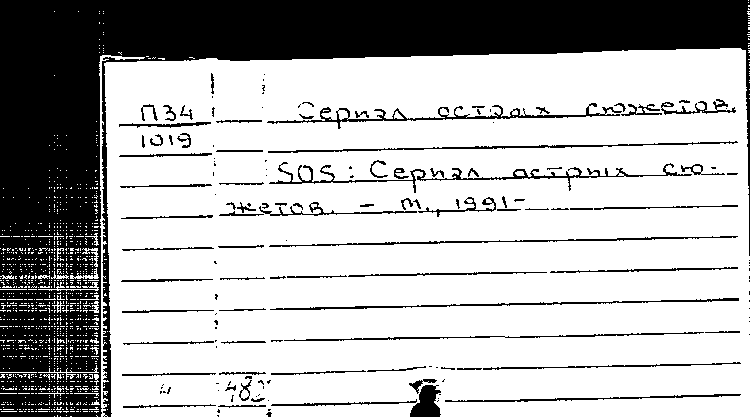 П34
Сериал острых сюжетов.
1019
SOS: Сериал острых сю-
жетов. – М., 1991-